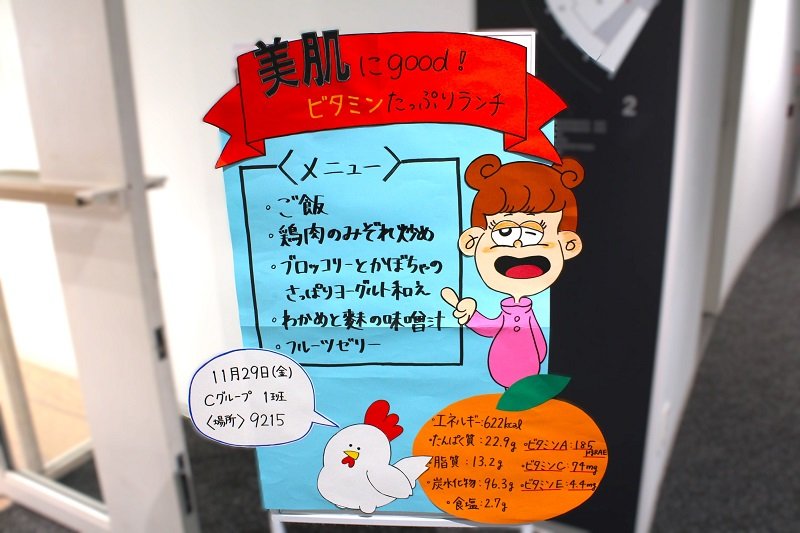 美肌にgood!
ビタミンたっぷりランチ
〈メニュー〉
・ご飯
・鶏肉のみぞれ炒め
・ブロッコリーとかぼちゃの
さっぱりヨーグルト和え
・わかめと麩の味噌汁
・フルーツゼリー
11月29日(金)
Cグループ 1班
〈場所〉9215
・エネルギー:622kcal
・たんぱく質:22.9g
・脂質:13.2g
・炭水化物:96.3g
・食塩:2.7g
・ビタミンA:185
μgRAE
・ビタミンC:74mg
・ビタミンE:4.4mg
2